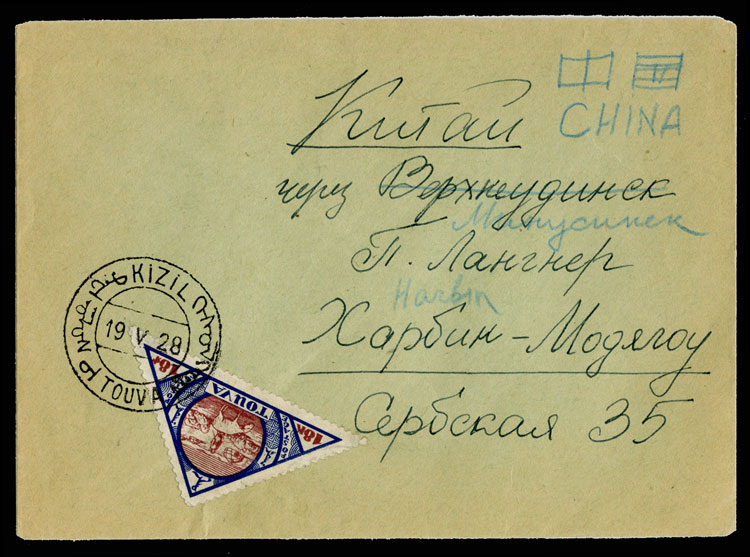 中国
CHINA
Китай
через Верхнеудинск
Минусинск
П. Лангнер
Harbin
Харбин-Модягоу
Сербская 35
KIZIL
19 V 28
TOUVA
TOUVA
18к
18к